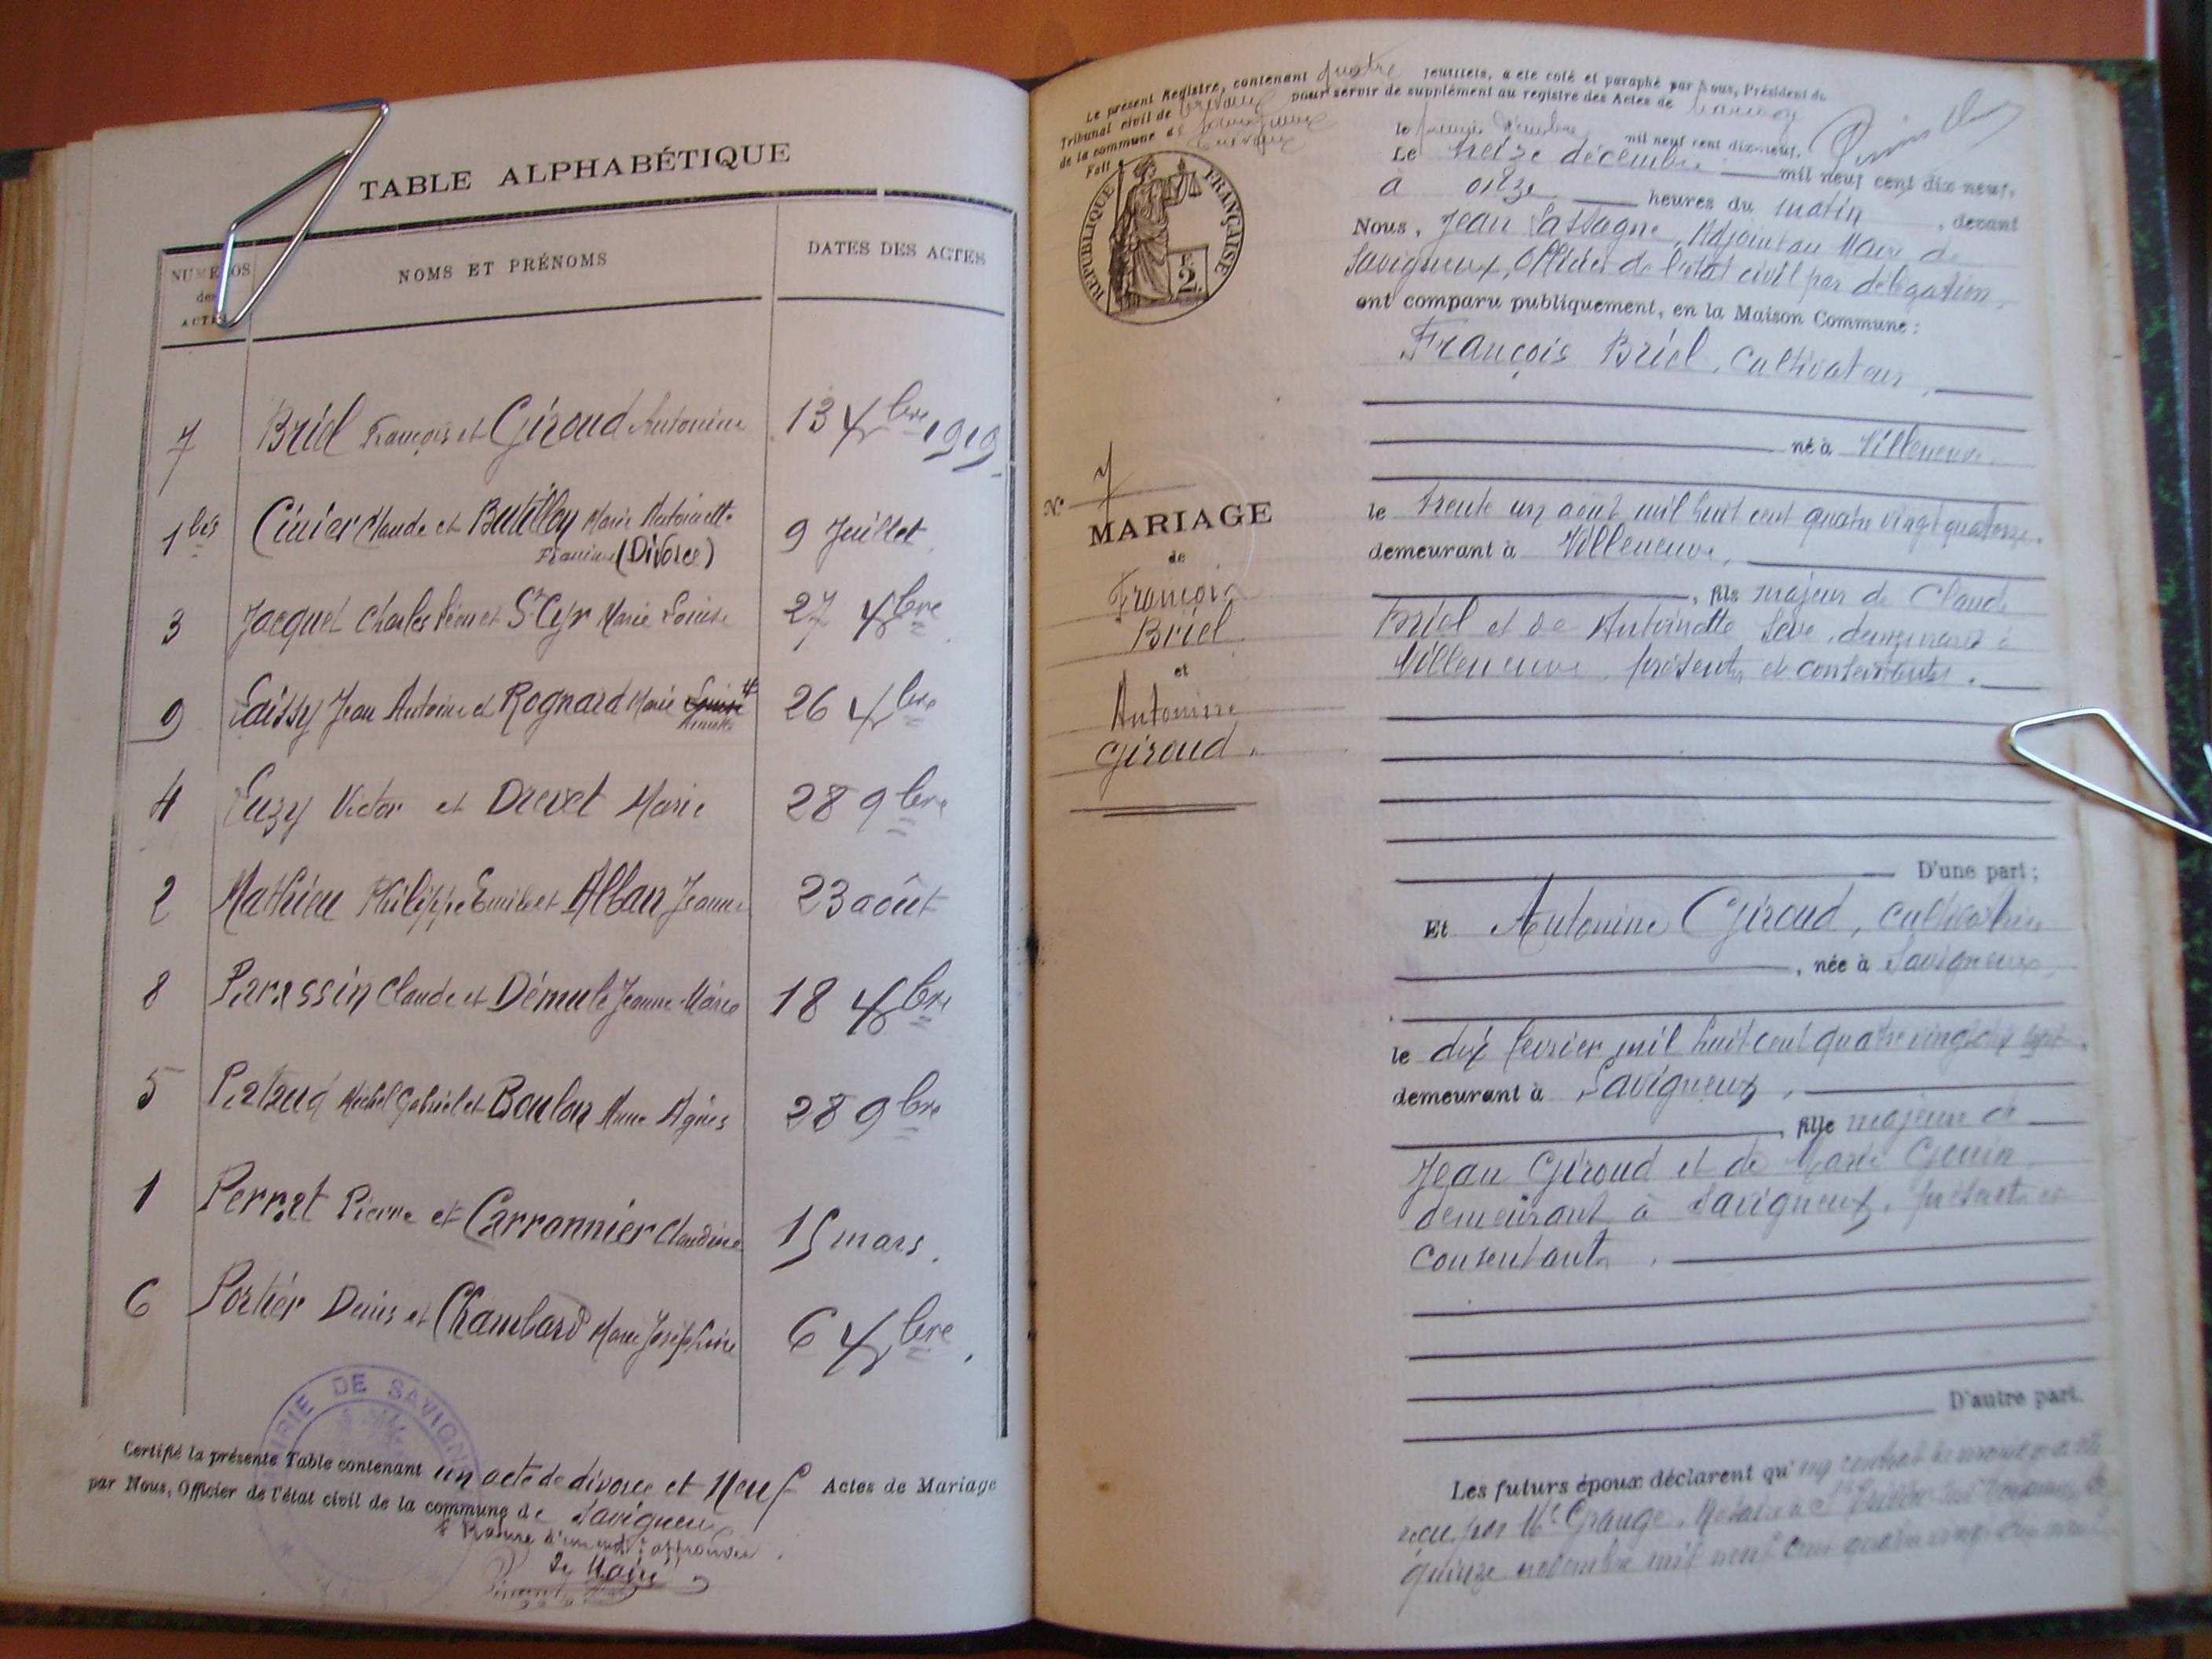 TABLE ALPHABÉTIQUE
NUMÉROS des ACTES
NOMS ET PRÉNOMS
DATES DES ACTES
7 Briel François et Giroud Antonine 13 Xbre 1919
1 bis Cinier Claude et Butillon Marie Antoinette
Francine (Divorce) 9 Juillet
3 Jacquet Charles Léon et St Cyr Marie Louise 27 Xbre
9 Laissy Jean Antoine et Rognard Marie Louise 26 Xbre
4 Luzy Victor et Drevet Marie 28 9bre
2 Mathieu Philippe Emile et Alban Jeanne 23 août
8 Perrassin Claude et Démule Jeanne Marie 18 Xbre
5 Michel Gabriel et Boulon Anne Agnès 28 9bre
1 Perret Pierre et Carronnier Claudine 15 mars.
6 Portier Denis et Chambard Marie Joséphine 6 Xbre.
MAIRIE DE SAVIGNEUX
Certifié la présente Table contenant un acte de divorce et Neuf Actes de Mariage
par Nous, Officier de l'état civil de la commune de Savigneux
Rature d'un mot approuvée.
Le Maire
Le présent Registre, contenant quatre feuillets, a été coté et paraphé par Nous, Président du
Tribunal civil de Trévoux pour servir de supplément au registre des Actes de
de la commune de Savigneux
Fait Trévoux le mil neuf cent dix-neuf.
RÉPUBLIQUE FRANÇAISE
2
Le treize décembre mil neuf cent dix-neuf,
à onze heures du matin, devant
Nous, Jean Lassagne, Adjoint au Maire de
Savigneux, Officier de l'état civil par délégation,
ont comparu publiquement, en la Maison Commune :
François Briel, cultivateur,
né à Villeneuve
N° 7
MARIAGE
de
François
Briel
et
Antonine
Giroud.
le trente un août mil huit cent quatre vingt quatorze.
demeurant à Villeneuve,
, fils majeur de Claude
Briel et de Antoinette Sève, demeurant à
Villeneuve, présents et consentants.
D'une part ;
Et Antonine Giroud, cultivatrice
, née à Savigneux,
le dix février mil huit cent quatre vingt dix sept.
demeurant à Savigneux,
, fille majeure de
Jean Giroud et de Marie Gouin
demeurant à Savigneux, présents et
consentants.
D'autre part.
Les futurs époux déclarent qu'un contrat de mariage a été
reçu par Me Grange, Notaire à
quinze novembre mil neuf cent